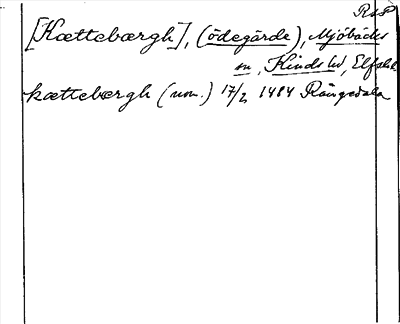 RAP
[Kættebærgh], (ödegärde), Mjöbäcks
sn, Kinds hd, Elfsb.
kættebærgh (nom.) 17/2 1484 Rångedala